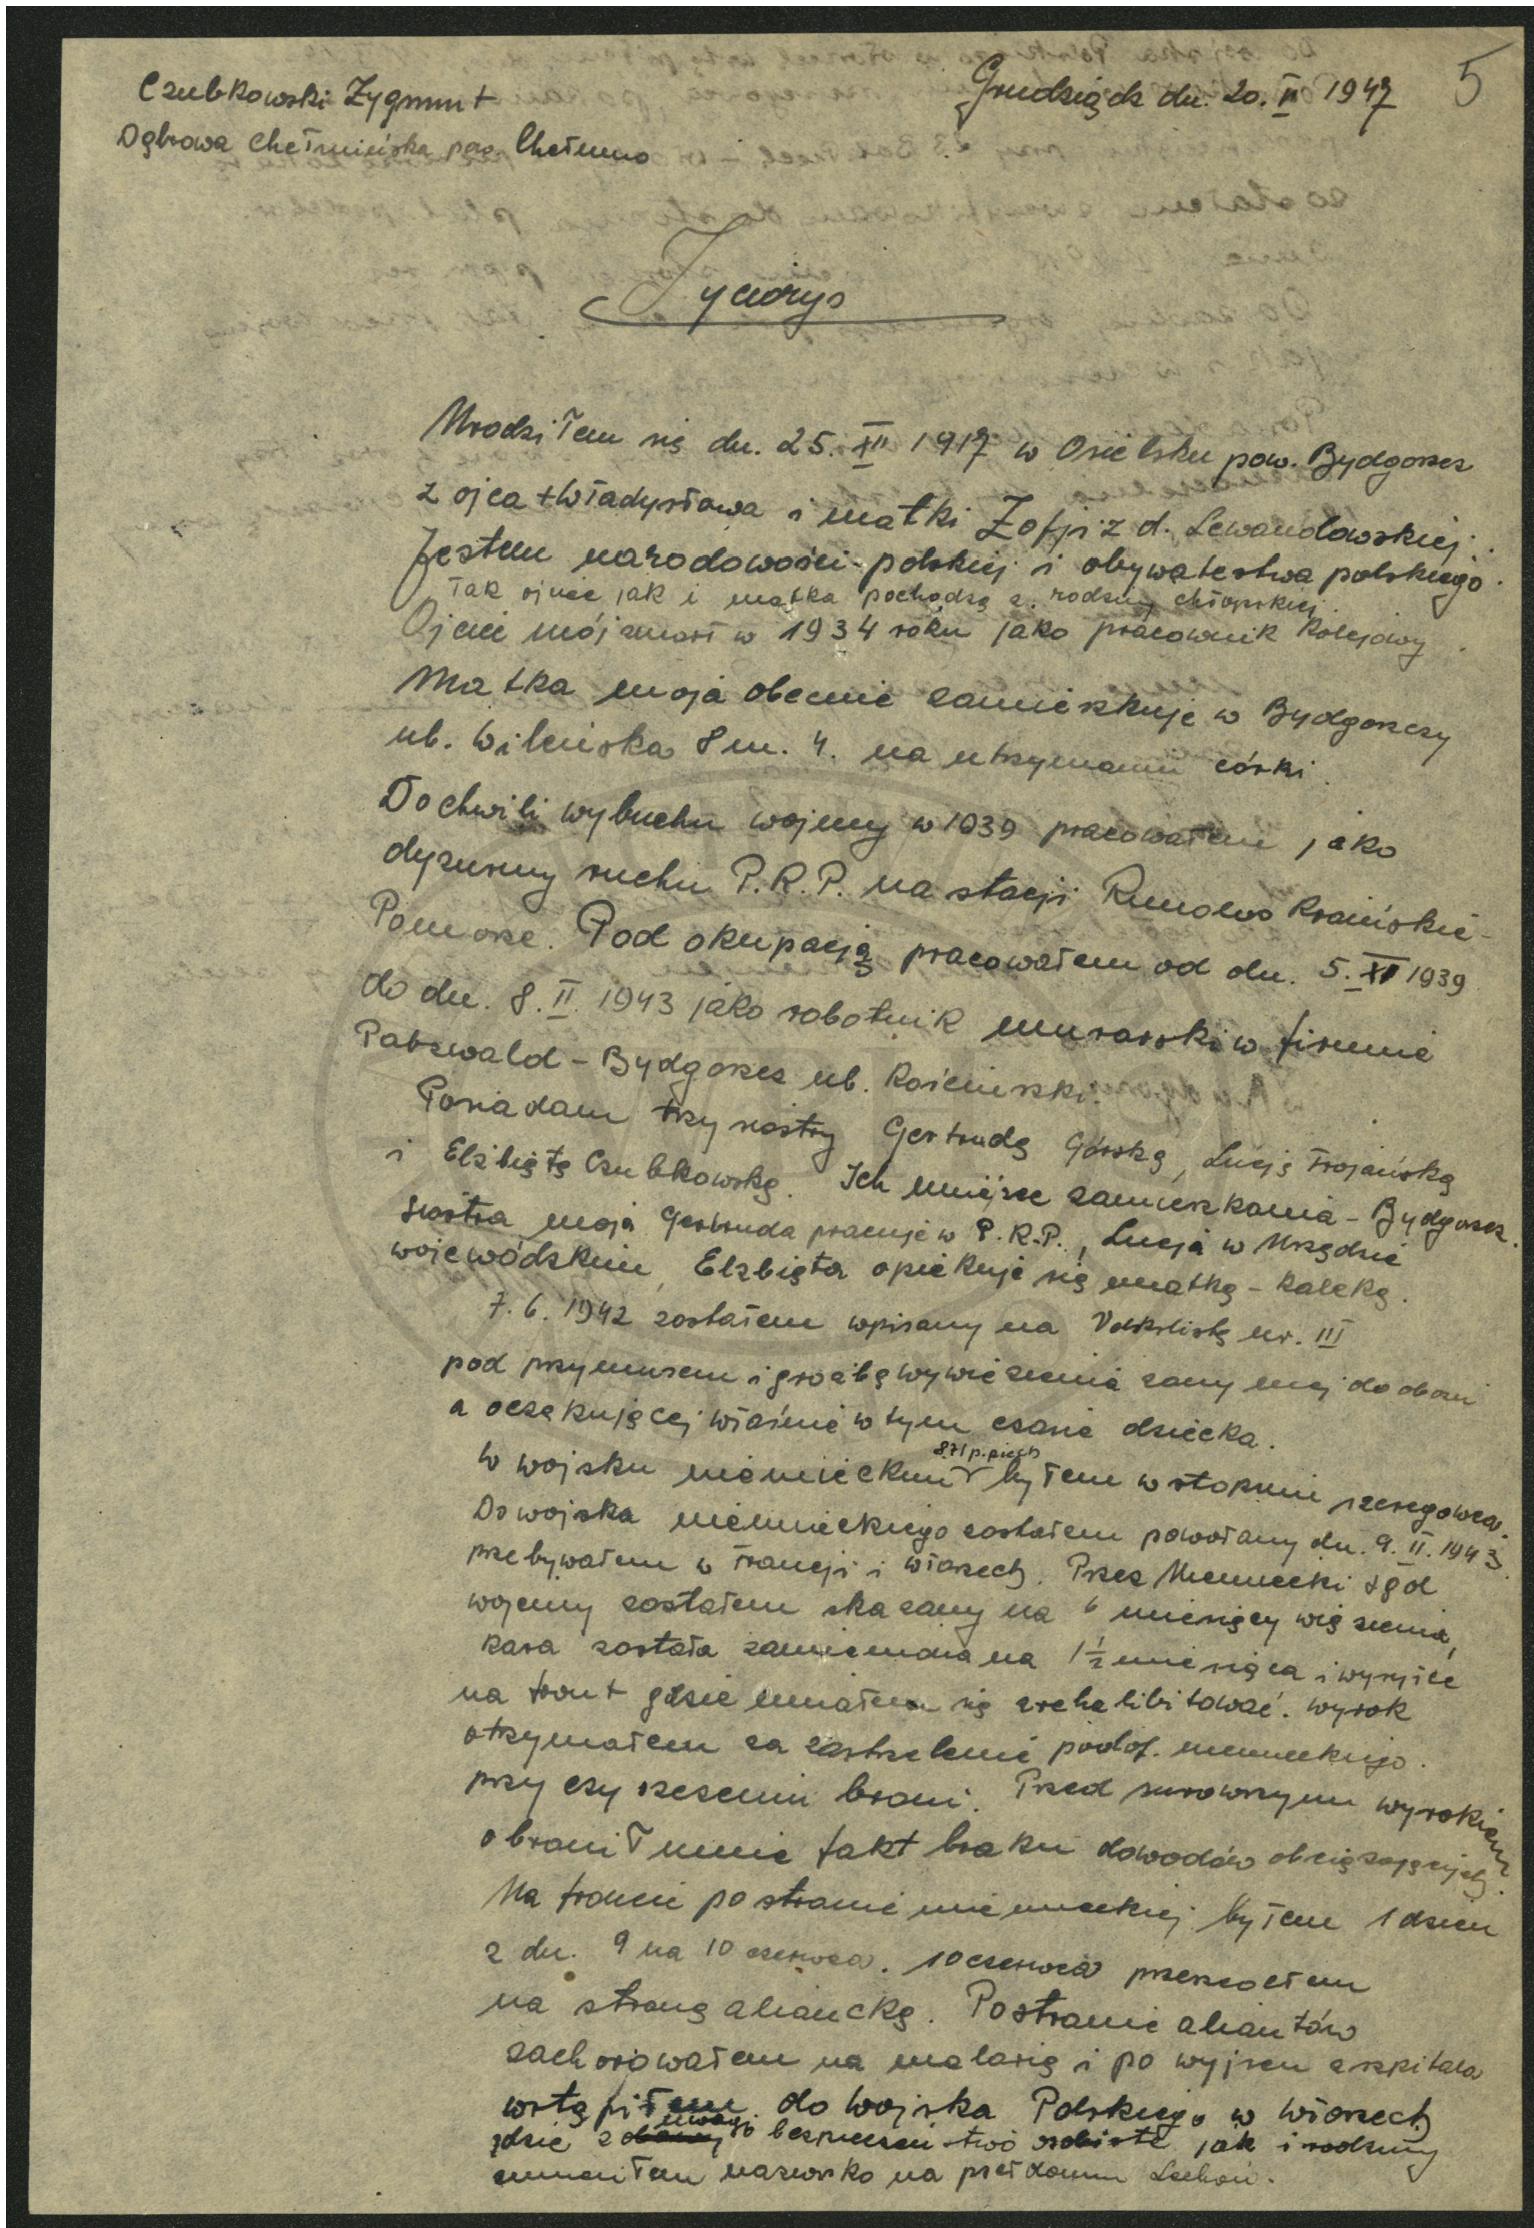 5
Czubkowski Zygmunt
Grudziądz dn. 20. II 1947
Dąbrowa Chełmińska pow. Chełmno
Życiorys
Urodziłem się dn. 25. XII 1917 w Osielsku pow. Bydgoszcz
z ojca +Władysława i matki Zofji z d. Lewandowskiej.
Jestem narodowości polskiej i obywatelstwa polskiego.
Tak ojciec jak i matka pochodzą z rodziny chłopskiej.
Ojciec mój zmarł w 1934 roku jako pracownik kolejowy.
Matka moja obecnie zamieszkuje w Bydgoszczy
ul. Wileńska 8 m. 4. na utrzymaniu córki.
Do chwili wybuchu wojny w 1939 pracowałem jako
dyżurny ruchu P.K.P. na stacji Runowo Kraińskie -
Pomorze. Pod okupacją pracowałem od dn. 5. XI 1939
do dn. 8. II. 1943 jako robotnik murarski w firmie
Patzwald - Bydgoszcz ul. Kościuszki.
Posiadam trzy siostry Gertrudę Górską, Lucję Trojańską
i Elżbiętę Czubkowską. Ich miejsce zamieszkania - Bydgoszcz.
Siostra moja Gertruda pracuje w P.K.P., Lucja w Urzędzie
wojewódzkim, Elżbięta opiekuje się matką - kaleką.
7. 6. 1942 zostałem wpisany na Volkslistę nr. III
pod przymusem i groźbą wywiezienia żony mej do obozu
a oczekującej właśnie w tym czasie dziecka.
W wojsku niemieckim 871 p. piech byłem w stopniu szeregowca.
Do wojska niemieckiego zostałem powołany dn. 9. II. 1943
przebywałem w Francji i Włoszech. Przez Niemiecki sąd
wojenny zostałem skazany na 6 miesięcy więzienia,
kara została zamieniona na 1 1/2 miesiąca i wyjście
na front gdzie miałem się zrehabilitować. Wyrok
otrzymałem za zastrzelenie podof. niemieckiego.
przy czyszczeniu broni. Przed surowszym wyrokiem
obronił mnie fakt braku dowodów obciążających.
Na froncie po stronie niemieckiej byłem 1 dzień
z dn. 9 na 10 czerwca. 10 czerwca przeszedłem
na stronę aliancką. Po stronie aliantów
zachorowałem na malarię i po wyjściu z szpitala
wstąpiłem do Wojska Polskiego w Włoszech
gdzie z uwagi bezpieczeństwo osobiste jak i rodziny
zmieniłem nazwisko na pseudonim Lechoń.